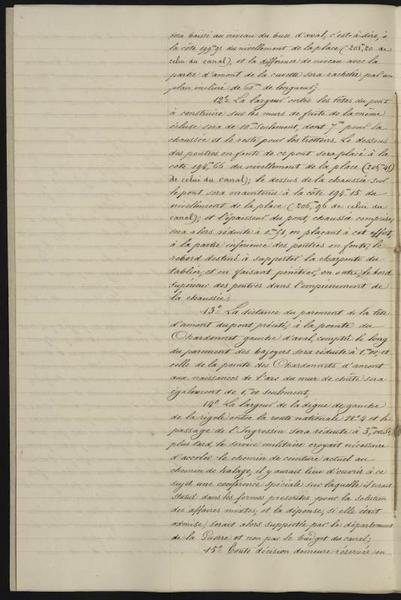 sera baissé au niveau du buse d'aval, c'est-à-dire, à
la côte 195.71 du nivellement de la place (205,20 de
celui du canal), et la différence de niveau avec la
partie d'amont de la cunette sera rachetée par un
plan incliné de 60m de longueur;
12° La largeur entre les têtes du pont
à construire sur les murs de fuite de la même
écluse sera de 10m seulement, dont 7m pour la
chaussée et le reste pour les trottoirs. Le dessous
des poutres en fonte de ce pont sera placé à la
côte de nivellement de la place
de celui du canal); le dessus de la chaussée sur
le pont sera maintenu à la côte 194.15 du
nivellement de la place (206,96 de celui du
canal); et l'épaisseur du pont, chaussée comprise,
sera alors réduite à en plaçant à cet effet,
à la partie inférieure des poutres en fonte, le
rebord destiné à supporter la charpente du
tablier, et en faisant pénétrer, en outre, le bord
supérieur des poutres dans l'empierrement de
la chaussée;
13° La distance du parement de la tête
d'amont du pont précité, à la pointe du
Chardonnet gauche d'aval, comptée le long
du parement des bajoyers sera réduite à et
celle de la pointe des Chardonnets d'amont
aux naissances de l'arc du mur de chûte sera
également de seulement,
14° La largeur de la digue de gauche
de la rigole entre la route nationale N° 4 et le
passage de l'Ingressin sera réduite à 3,m
plus tard le service militaire croyait nécessaire
d'accoler le chemin de ceinture actuel au
chemin de halage, il y aurait lieu d'ouvrir à ce
sujet une conférence spéciale sur laquelle il serait
statué dans les formes prescrites pour la solution
des affaires mixtes, et la dépense, si elle était
admise, serait alors supportée par le département
de la Guerre et non par le budget du canal;
15° Toute décision demeure réservée en